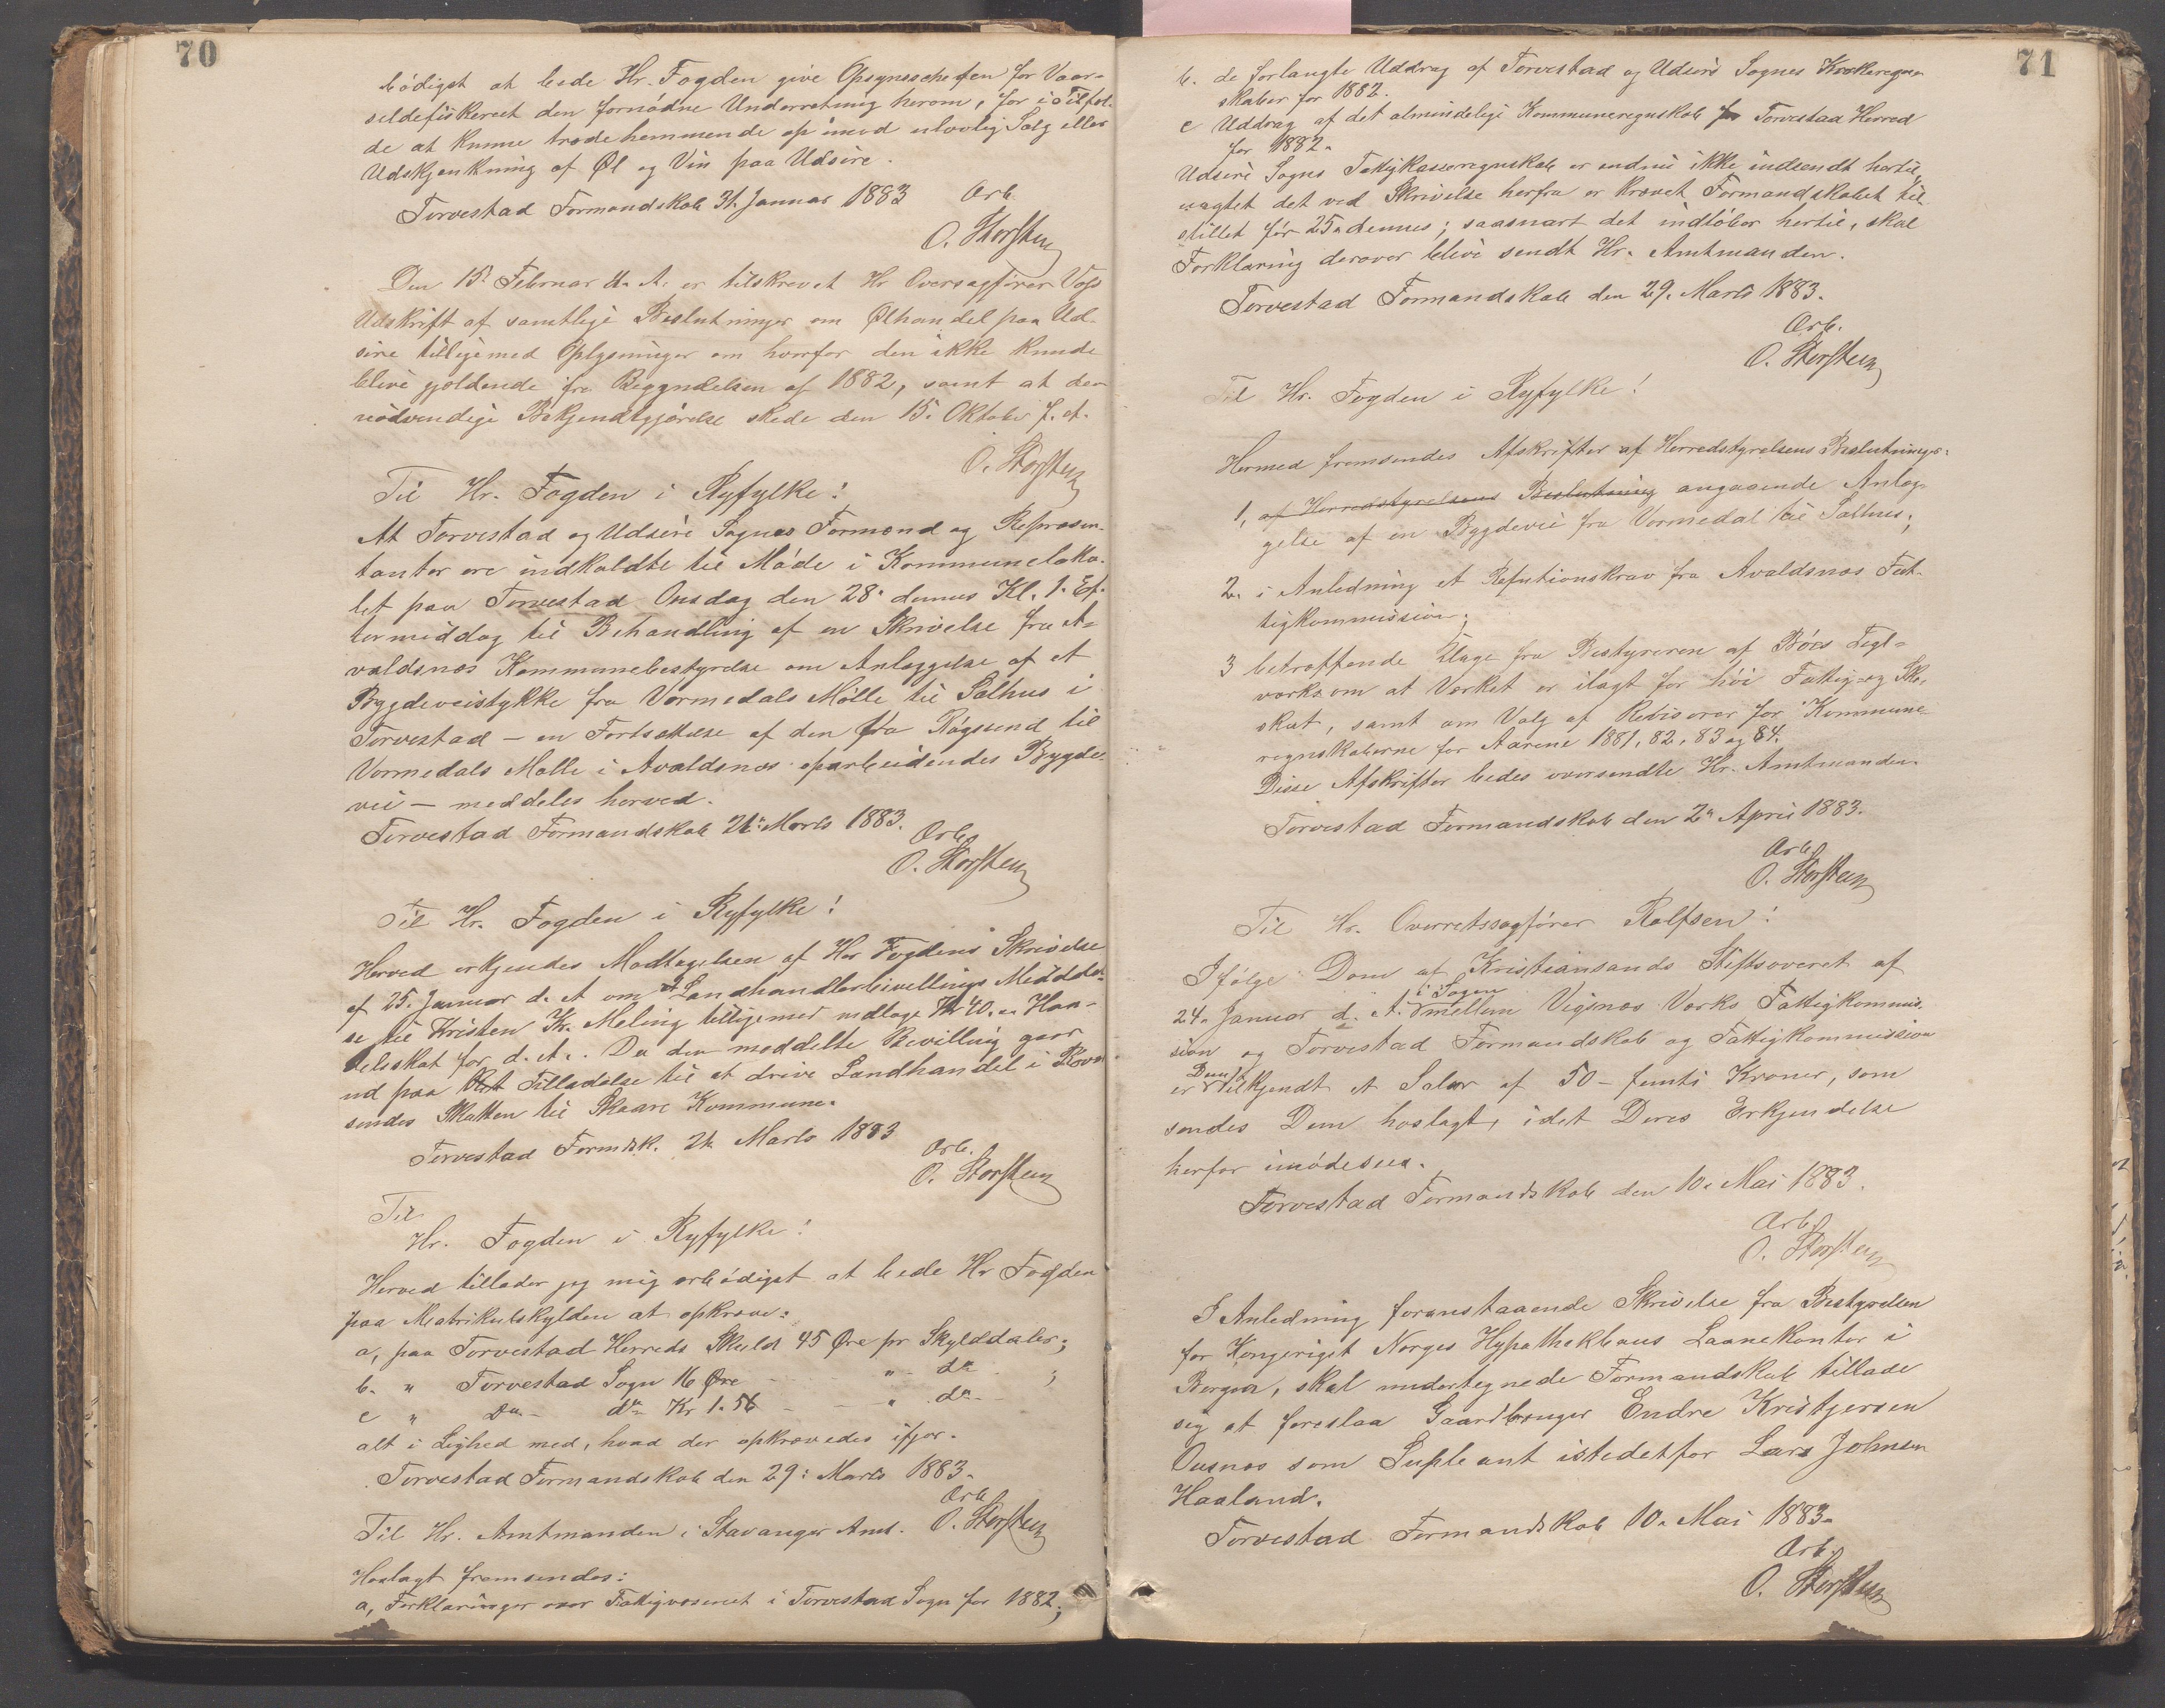 70
bödigst at bede Hr. Fogden give Opsynschefen for Vaar-
sildefiskeriet den fornödne Underretning herom, for i Tilfæl-
de at kunne træde hemmende op imod ulovlig Salg eller
Udskjænkning af Øl og Vin paa Udsire.
Torvestad Formandskab 31. Januar 1883
Ærb.
O. Storsten
Den 15. Februar d. A. er tilskrevet Hr Oversagförer Voss
Udskrift af samtlige Beslutninger om Ølhandel paa Ud-
sire tilligemed Oplysninger om hvorfor den ikke kunde
blive gjældende fra Begyndelsen af 1882, samt at den
nödvendige Bekjendtgjörelse skede den 15. Oktober f. A.
O. Storsten
Til Hr. Fogden i Ryfylke!
At Torvestad og Udsire Sognes Formænd og Repræsen-
tanter ere indkaldte til Möde i Kommuneloka-
let paa Torvestad Onsdag den 28. dennes Kl. 1. Ef-
termiddag til Behandling af en Skrivelse fra A-
valdsnæs Kommunebestyrelse om Anlæggelse af et
Bygdeveistykke fra Vormedals Mölle til Salhus i
Torvestad – en Fortsættelse af den fra Røgsund til
Vormedals Mölle i Avaldsnæs oparbeidendes Bygde-
vei – meddeles herved.
Torvestad Formandskab 21. Marts 1883.
Ærb.
O. Storsten
Til Hr. Fogden i Ryfylke!
Herved erkjendes Modtagelsen af Hr Fogdens Skrivelse
af 25. Januar d. A om Landhandlerbevillings Meddelel-
se til Kristen Kr. Meling tilligemed vedlagt Kr 40. Han-
delsskat for d. A. Da den meddelte Bevilling gaar
ud paa Tilladelse til at drive Landhandel i
sendes Skatten til Skaare Kommune.
Torvestad Formdsk. 21 Marts 1883
Ærb.
O. Storsten
Til
Hr. Fogden i Ryfylke!
Herved tillader jeg mig ærbödigst at bede Hr Fogden
paa Matrikulskylden at opkræve:
a, paa Torvestad Herreds Skyld 45 Øre pr Skylddaler;
b. " Torvestad Sogn 16 Øre - - " - do ;
c " Do - do Kr 1.56 - - " do -
alt i Lighed med, hvad der opkrævedes ifjor.
Torvestad Formandskab den 29. Marts 1883.
Ærb.
Til Hr. Amtmanden i Stavanger Amt. O. Storsten
Hoslagt fremsendes:
a, Forklaringer over Fattigvæsenet i Torvestad Sogn for 1882;
71
b. de forlangte Uddrag af Torvestad og Udsire Sognes Kirkeregn-
skaber for 1882.
c Uddrag af det almindelige Kommuneregnskab for Torvestad Herred
for 1882.
Udsire Sogns Fattigkasseregnskab er endnu ikke indsendt hertil,
uagtet det ved Skrivelse herfra er krævet Formandskabet til-
stillet för 25. dennes; saasnart det indlöber hertil, skal
Forklaring derover blive sendt Hr. Amtmanden.
Torvestad Formandskab den 29. Marts 1883.
Ærb.
O. Storsten
Til Hr. Fogden i Ryfylke!
Hermed fremsendes Afskrifter af Herredstyrelsens Beslutninger:
1, af Herredstyrelsens Beslutning angaaende Anlæg-
gelse af en Bygdevei fra Vormedal til Salhus;
2. i Anledning et Refutionskrav fra Avaldsnæs Fat-
tigkommission;
3 betræffende Klage fra Bestyreren af Böes Tegl-
værk om at Værket er ilagt for höi Fattig- og Sko-
skat, samt om Valg af Revisorer for Kommune-
regnskaberne for Aarene 1881, 82, 83 og 84.
Disse Afskrifter bedes oversendte Hr. Amtmanden.
Torvestad Formandskab den 2. April 1883.
Ærb.
O. Storsten
Til Hr. Overretssagförer Rolfsen!
Ifölge Dom af Kristiansands Stiftsoveret af
24. Januar d. A. i Sagen mellem Vigsnæs Værks Fattigkommis-
sion og Torvestad Formandskab og Fattigkommission
er Dem tilkjendt et Salær af 50 - femti Kroner, som
sendes Dem hoslagt, idet Deres Erkjendelse
herfor imödesees.
Torvestad Formandskab den 10. Mai 1883.
Ærb.
O. Storsten
I Anledning foranstaaende Skrivelse fra Bestyrelsen
for Kongeriget Norges Hypothekbans Laanekontor i
Bergen, skal undertegnede Formandskab tillade
sig at foreslaa Gaardbruger Endre Kristjersen
Ousnæs som Supleant istedetfor Lars Johnsen
Haaland.
Torvestad Formandskab 10. Mai 1883.
Ærb.
O. Storsten